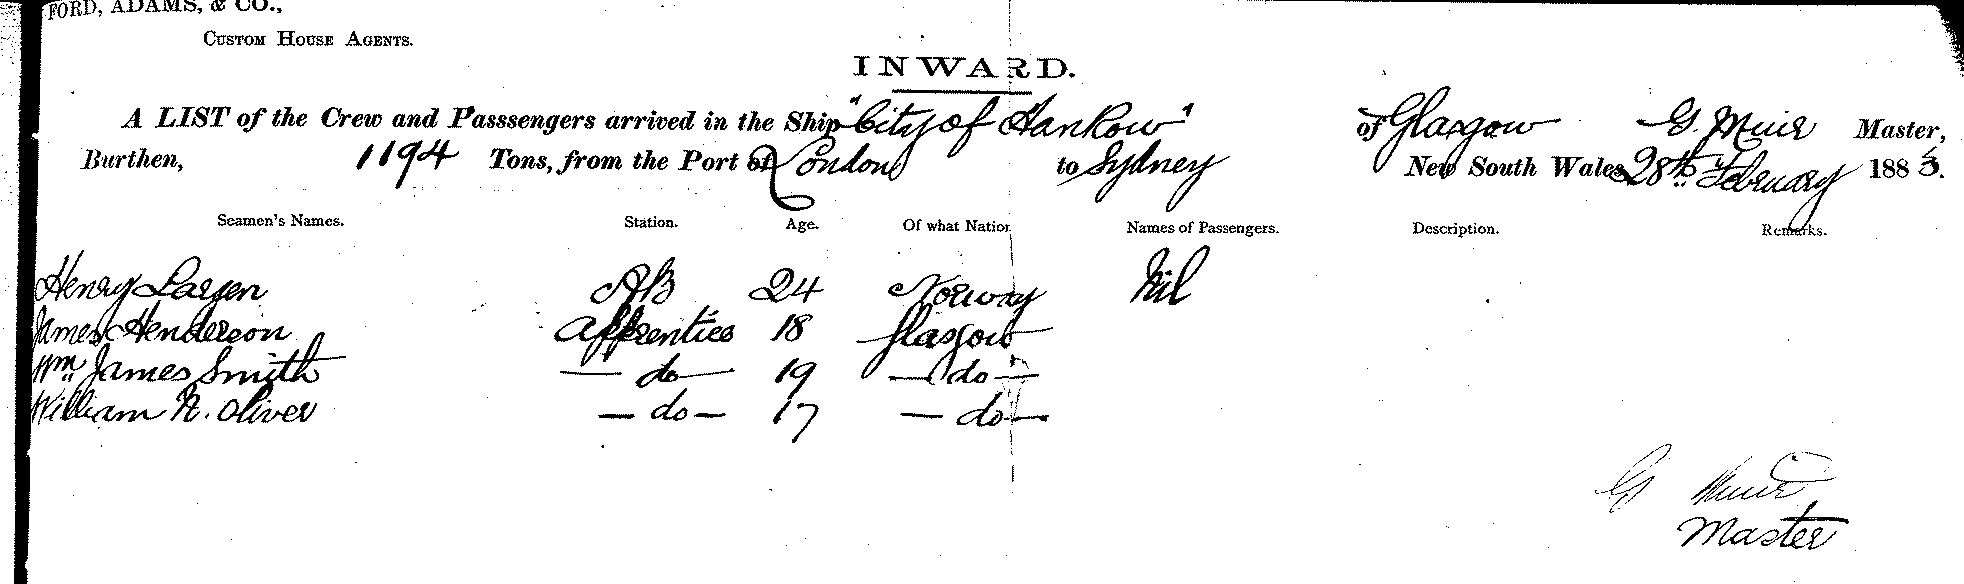 FORD, ADAMS, & CO.,
CUSTOM HOUSE AGENTS.
INWARD.
A LIST of the Crew and Passsengers arrived in the Ship "City of Hankow" of Glasgow G. Muir Master,
Burthen, 1194 Tons, from the Port of London to Sydney New South Wales 28th February 1883.
Seamen's Names. Station. Age. Of what Nation Names of Passengers. Description. Remarks.
Henry Larsen AB 24 Norway Nil
James Henderson Apprentice 18 Glasgow
Wm James Smith — do — 19 — do —
William N. Oliver — do — 17 — do —
G Muir
Master